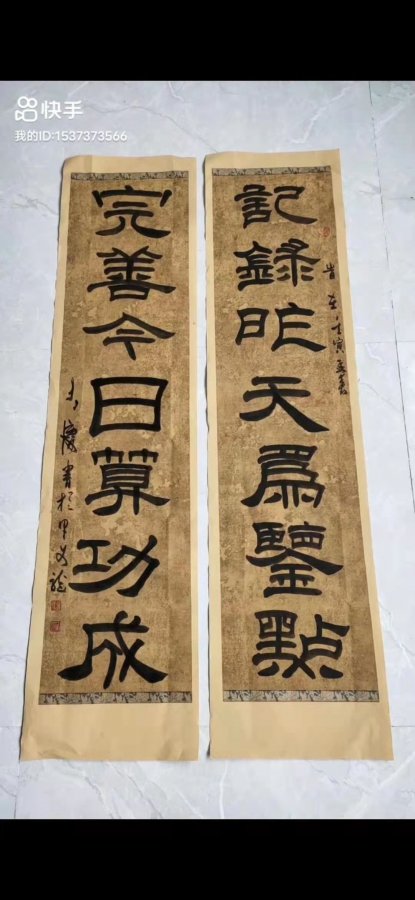 快手
我的ID:1537373566
記錄昨天爲鑒點
時在壬寅年春
完善今日算功成